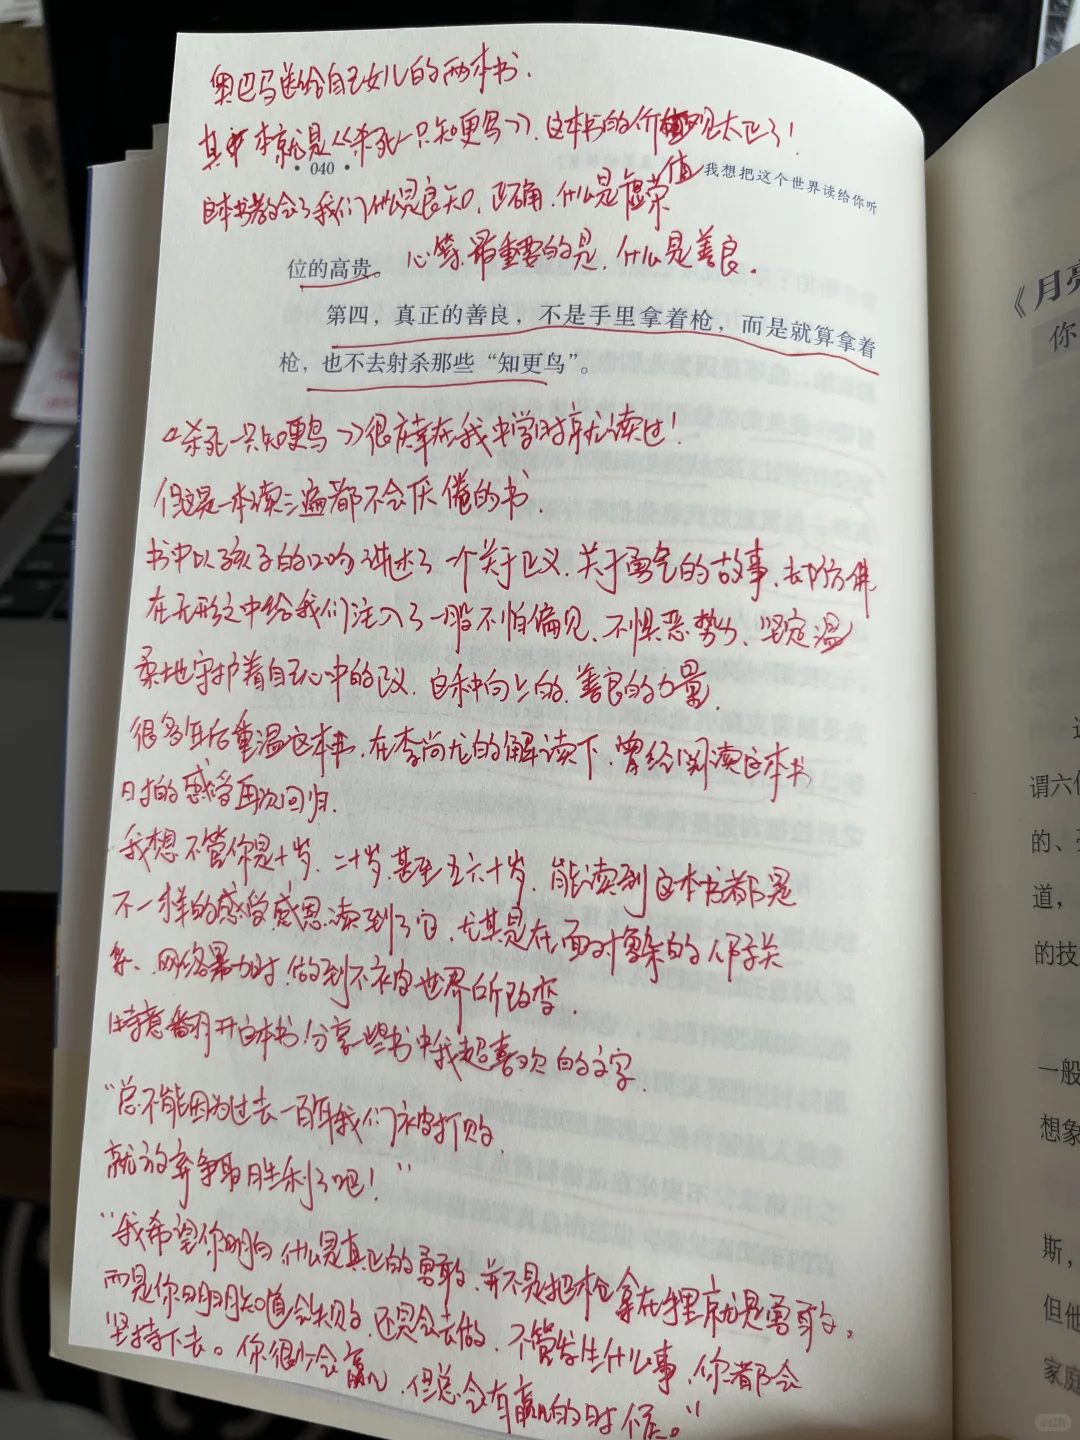 奥巴马送给自己女儿的两本书.
其中一本就是《杀死一只知更鸟》，这本书的价值观太正了！
· 040 ·
我想把这个世界读给你听
这本书教会了我们什么是良知、正确，什么是虚荣
心等，最重要的是，什么是善良。
位的高贵。
第四，真正的善良，不是手里拿着枪，而是就算拿着
枪，也不去射杀那些“知更鸟”。
《杀死一只知更鸟》很庆幸在我中学时就读过！
但这是一本读三遍都不会厌倦的书.
书中以孩子的口吻讲述了一个关于正义、关于勇气的故事，却仿佛
在无形之中给我们注入了一股不怕偏见、不惧恶势力、坚定温
柔地守护着自己心中的正义，这种向上的、善良的力量.
很多年后重温这本书，在李尚龙的解读下，曾经阅读这本书
时的感受再次回归.
我想不管你是十岁、二十岁，甚至五六十岁，能读到这本书都是
不一样的感受，感恩读到了它，尤其是在面对复杂的人际关
系、网络暴力时，做到不被世界所改变.
特意翻开这本书，分享一些书中我超喜欢的文字.
“总不能因为过去一百年我们被打败
就放弃争取胜利了吧！”
“我希望你明白什么是真正的勇敢，并不是把枪拿在手里就是勇敢，
而是你明明知道会失败，还是会去做，不管发生什么事，你都会
坚持下去。你很少会赢，但总会有赢的时候。”
《月亮
你
谓六
的、
道，
的技
一般
想象
斯，
但他
家庭
小红书